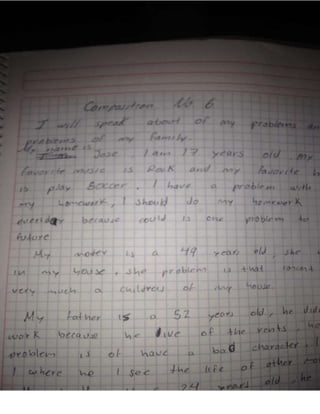 Composition No. 6
I will speak about of my problems an
problems of my family.
My name is Jose I am 17 years old. my
favorite music is Rock and my favorite h
is play Soccer. I have a problem with
my homework, I should do my homework
everyday because could is one problem to
future
My moter is a 49 years old, she
in my house. she problem is that
very much a childrens of my house.
My father is a 52 years old, he did
work because he live of the rents, he
problem is of have a bad character.
I where he I see the life of other mo
24 years old he